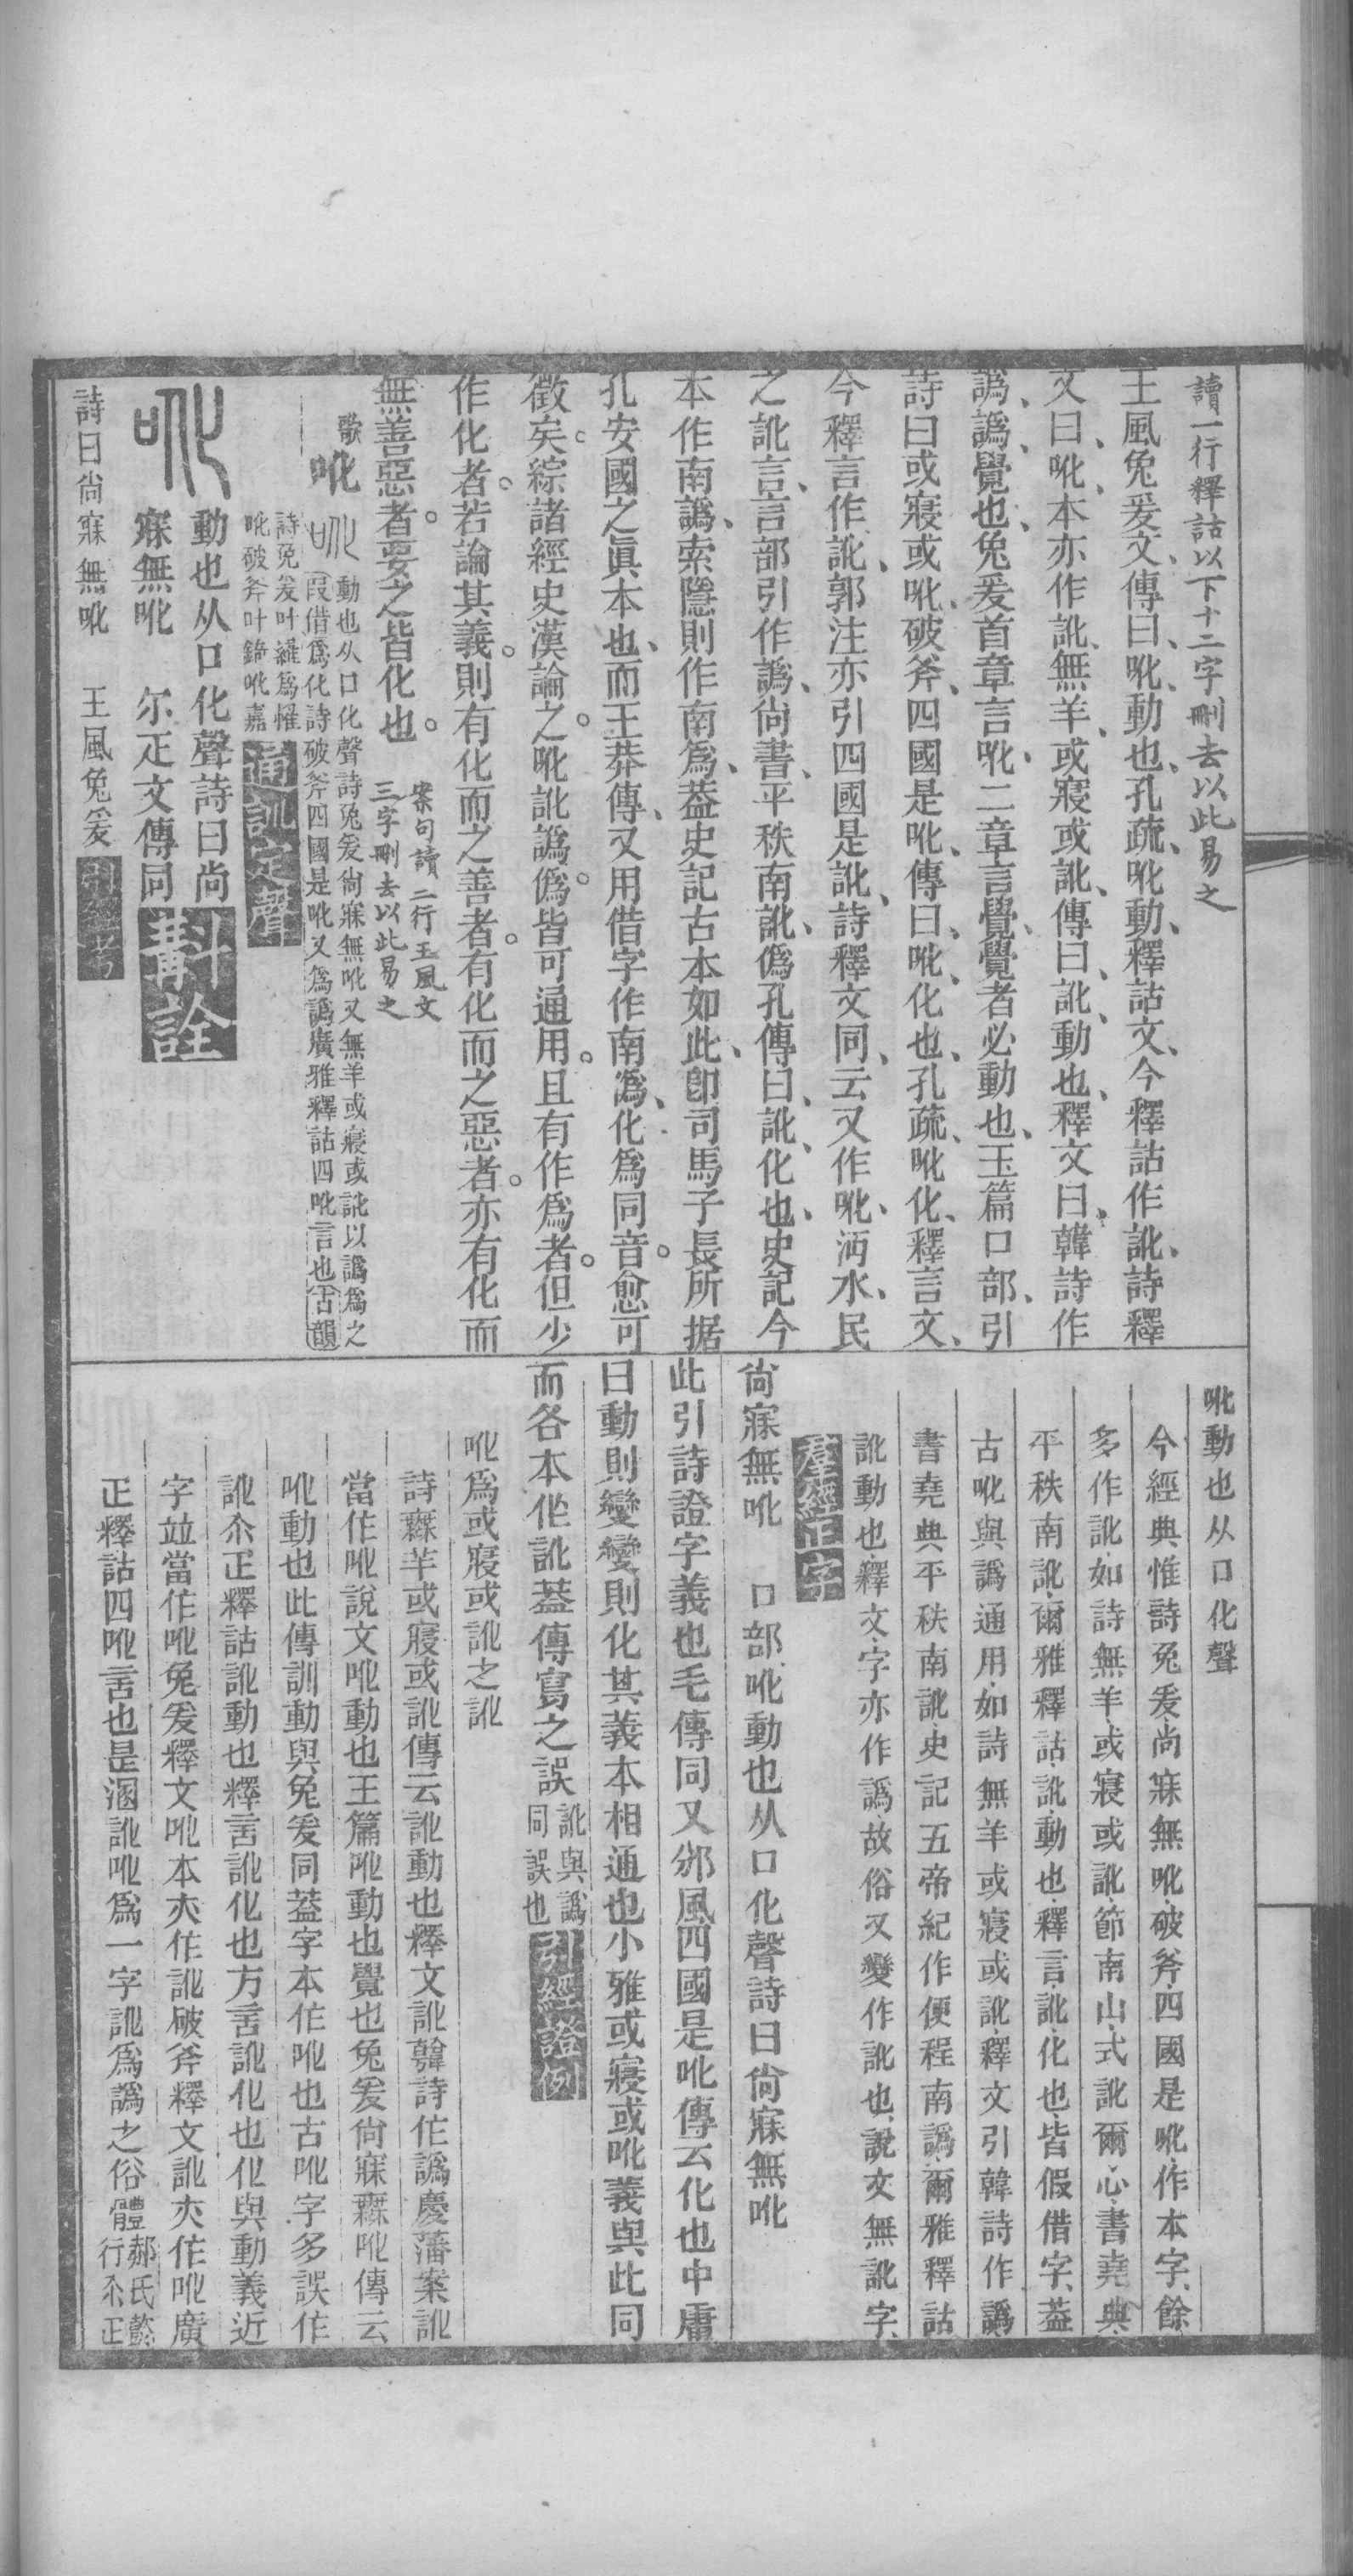 讀一行釋詁以下十二字刪去以此易之
王風兔爰文傳曰吪動也孔疏吪動釋詁文今釋詁作訛詩釋
文曰吪本亦作訛無羊或寢或訛傳曰訛動也釋文曰韓詩作
譌譌覺也兔爰首章言吪二章言覺覺者必動也玉篇口部引
詩曰或寢或吪破斧四國是吪傳曰吪化也孔疏吪化釋言文
今釋言作訛郭注亦引四國是訛詩釋文同云又作吪沔水民
之訛言言部引作譌尙書平秩南訛僞孔傳曰訛化也史記今
本作南譌索隱則作南爲葢史記古本如此卽司馬子長所据
孔安國之眞本也而王莽傳又用借字作南僞化爲同音愈可
徵矣綜諸經史漢論之吪訛譌僞皆可通用且有作爲者但少
作化者若論其義則有化而之善者有化而之惡者亦有化而
無善惡者要之皆化也
案句讀二行玉風文
三字刪去以此易之
歌吪
動也从口化聲詩兔爰尙寐無吪又無羊或寢或訛以譌爲之
叚借爲化詩破斧四國是吪又爲譌廣雅釋詁四吪言也古韻
詩兔爰叶羅爲罹
吪破斧叶錡吪嘉
通訓定聲
動也从口化聲詩曰尙
寐無吪　尔疋文傳同
斠詮
詩曰尙寐無吪　王風兔爰
引經考
吪動也从口化聲
今經典惟詩兔爰尚寐無吪破斧四國是吪作本字餘
多作訛如詩無羊或寢或訛節南山式訛爾心書堯典
平秩南訛爾雅釋詁訛動也釋言訛化也皆假借字葢
古吪與譌通用如詩無羊或寢或訛釋文引韓詩作譌
書堯典平秩南訛史記五帝紀作便程南譌爾雅釋詁
訛動也釋文字亦作譌故俗又變作訛也說文無訛字
羣經正字
尙寐無吪　口部吪動也从口化聲詩曰尙寐無吪
此引詩證字義也毛傳同又邠風四國是吪傳云化也中庸
曰動則變變則化其義本相通也小雅或寢或吪義與此同
而各本作訛葢傳寫之誤
訛與譌
同誤也
引經證例
吪爲或寢或訛之訛
詩無羊或寢或訛傳云訛動也釋文訛韓詩作譌慶藩案訛
當作吪說文吪動也玉篇吪動也覺也兔爰尙寐無吪傳云
吪動也此傳訓動與兔爰同葢字本作吪也古吪字多誤作
訛尒疋釋詁訛動也釋言訛化也方言訛化也化與動義近
字竝當作吪兔爰釋文吪本亦作訛破斧釋文訛亦作吪廣
疋釋詁四吪言也是溷訛吪爲一字訛爲譌之俗體
郝氏懿
行尒疋